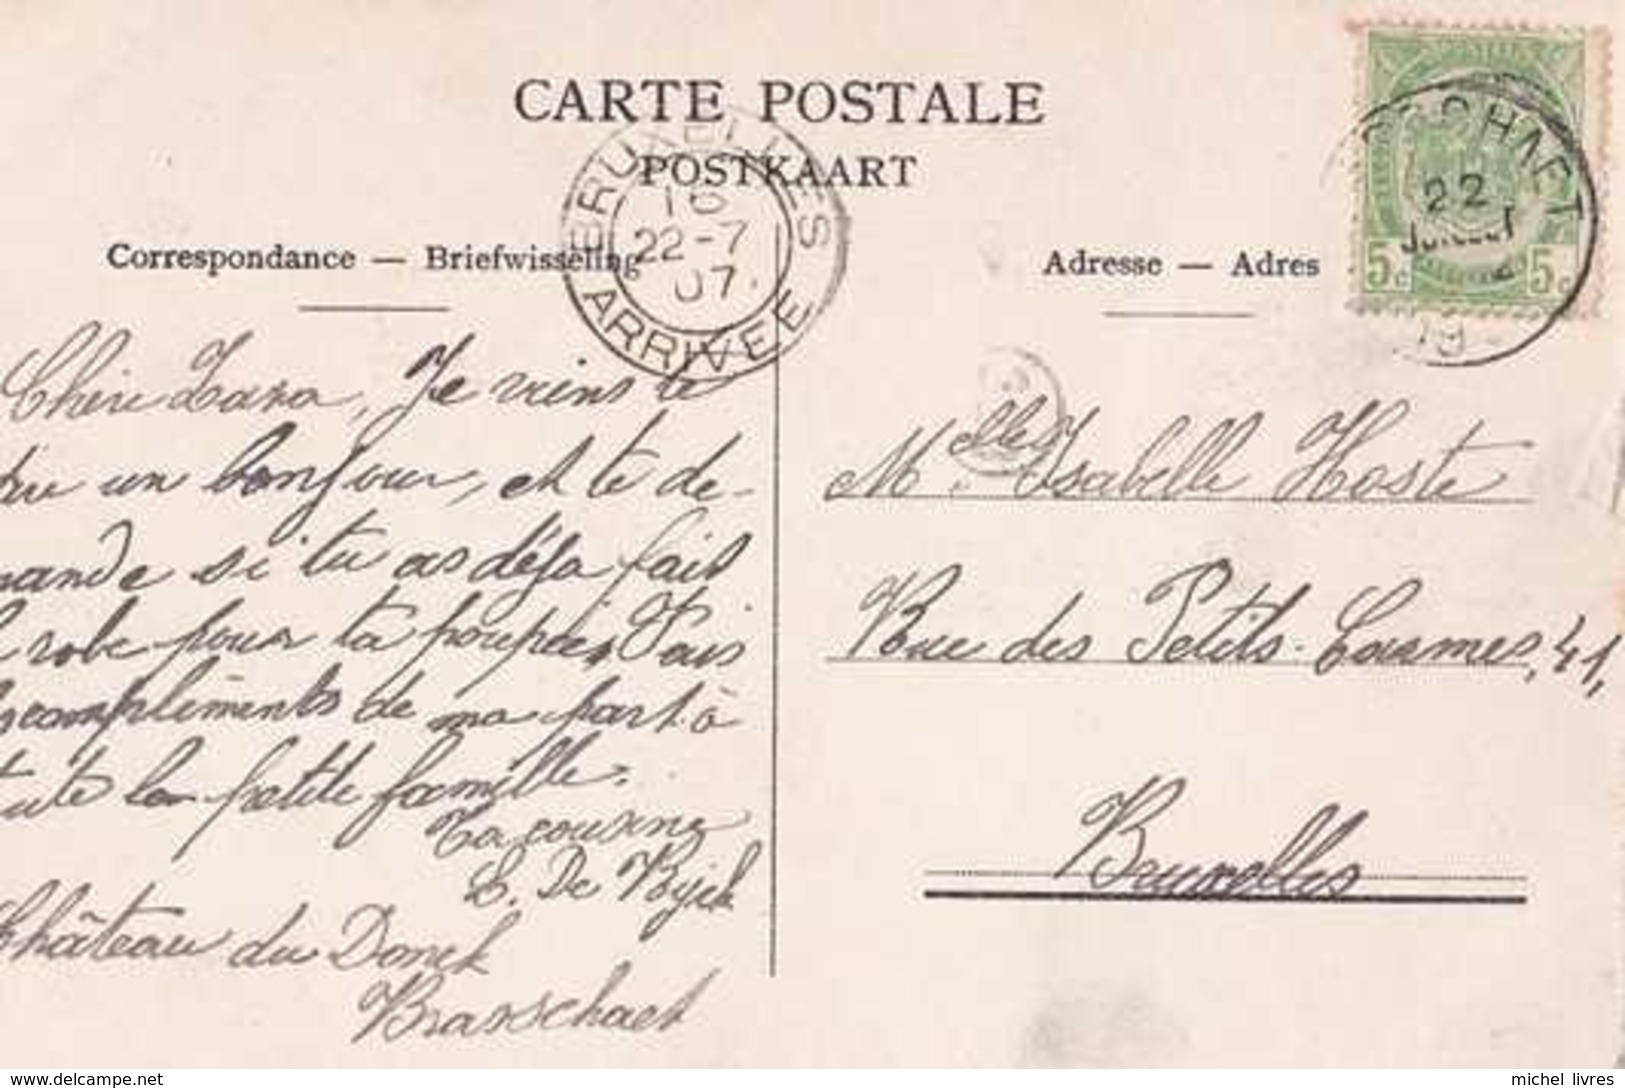 CARTE POSTALE
POSTKAART
Correspondance — Briefwisseling
Adresse — Adres
BRUXELLES
22-7
07
ARRIVEE
22
JUILLET
5c 5c
Chère Zara, Je viens te
un bonjour, et te de-
mande si tu as déja fait
robe pour ta poupée, Fais
compliments de ma part à
la petite famille.
Ta cousine
Château du Donck
Brasschaet
Melle Isabelle Hoste
Rue des Petits-Carmes, 41,
Bruxelles
delcampe.net
michel_livres